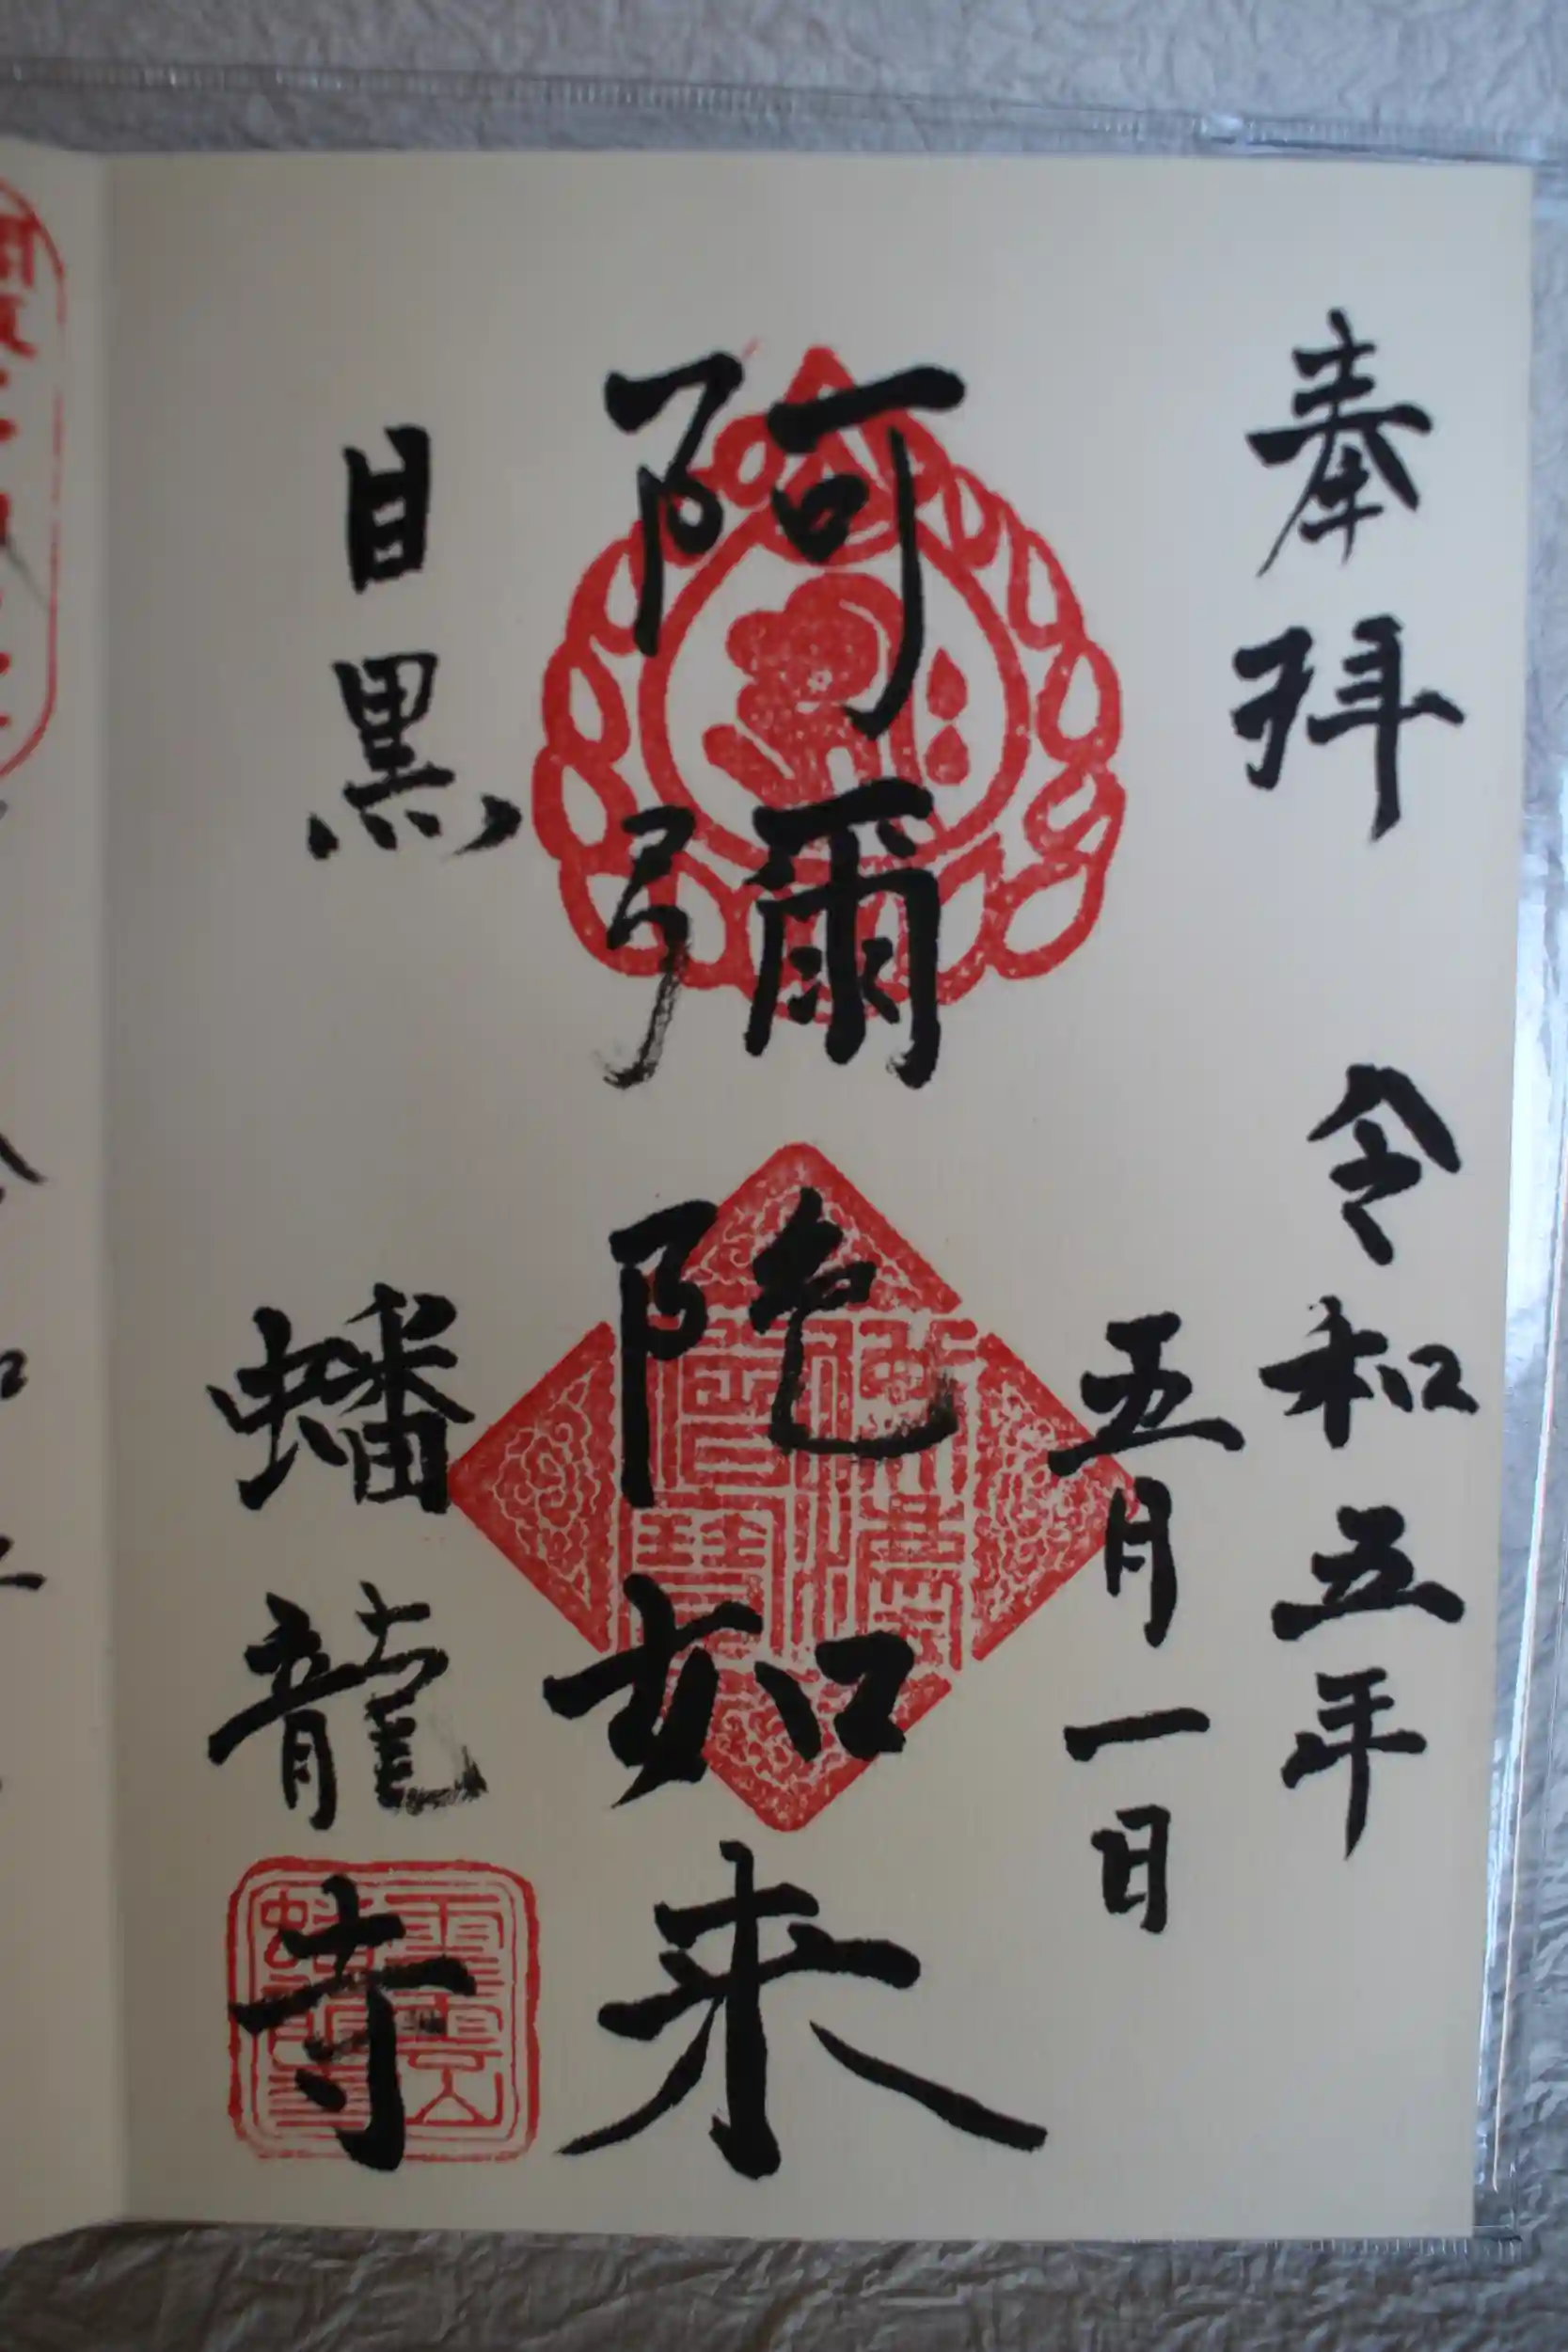 奉拝　令和五年
五月一日
阿彌陀如来
目黒　蟠龍寺